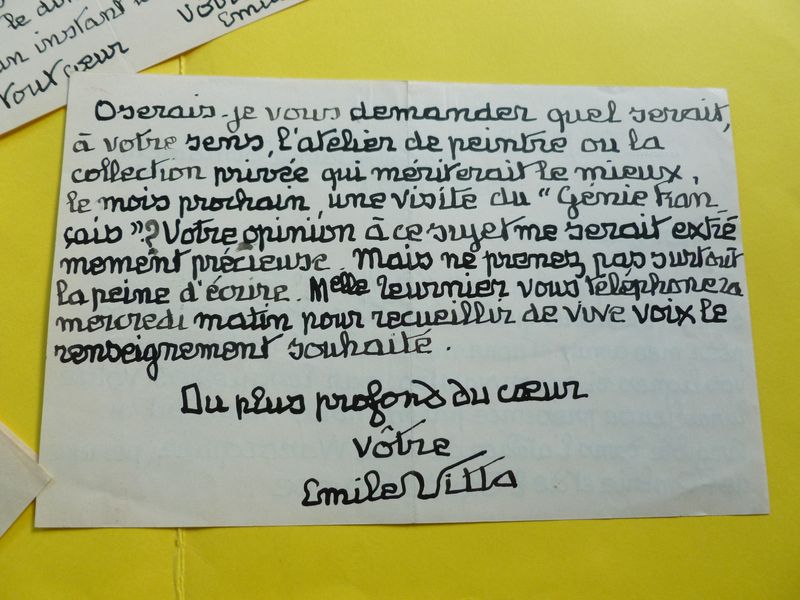 le
un instant
tout cœur
Oserais-je vous demander quel serait,
à votre sens, l'atelier de peintre ou la
collection privée qui mériterait le mieux,
le mois prochain, une visite du "Génie Fran_
çais"? Votre opinion à ce sujet me serait extrê
mement précieuse. Mais ne prenez pas surtout
la peine d'écrire. Melle Leurnier vous téléphonera
mercredi matin pour recueillir de vive voix le
renseignement souhaité.
Du plus profond du cœur
vôtre
Emile Villa